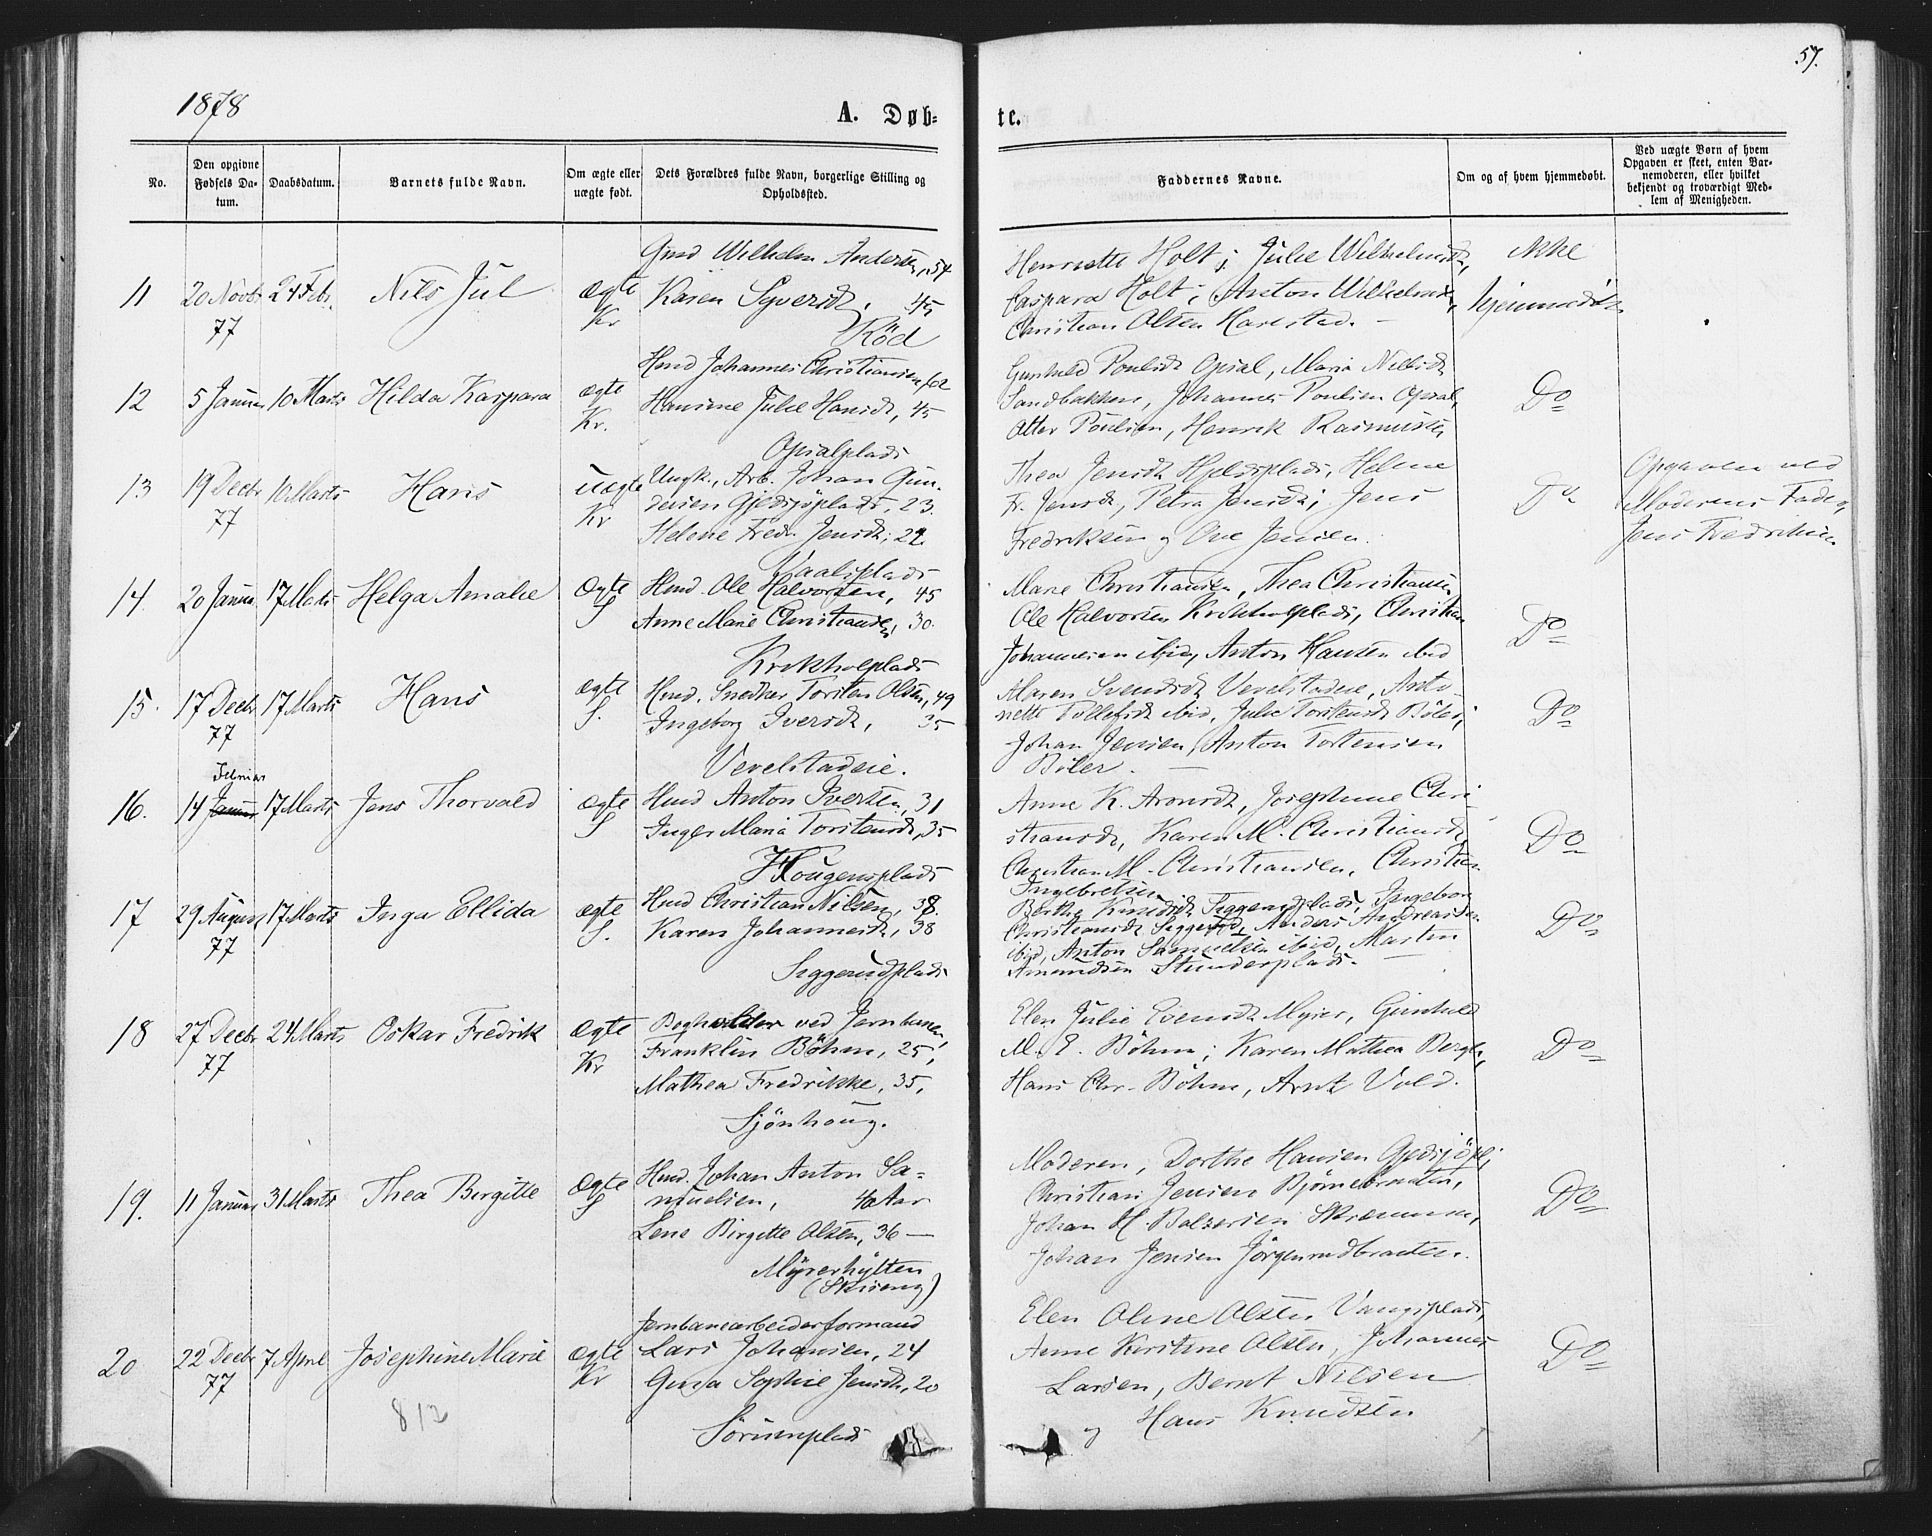 57.
1878
A. Døb-
te.
No.
Den opgivne Fødsels Da-tum.
Daabsdatum.
Barnets fulde Navn.
Om ægte eller uægte født.
Dets Forældres fulde Navn, borgerlige Stilling og Opholdssted.
Faddernes Navne.
Om og af hvem hjemmedøbt.
Ved uægte Børn af hvem Opgaven er skeet, enten Bar-nemoderen, eller hvilket bekjendt og troværdigt Med-lem af Menigheden.
11
20 Novbr 77
24 Febr.
Nils Jul
Ægte Kr
Gmd Wilhelm Andersen, 54
Karen Syversdt, 45
Röd
Henriette Holt; Julie
Caspara Holt; Anton
Christian Olsen Harestad.
ikke
12
5 Januar
10 Marts
Hilda Kaspara
ægte Kr.
Hmd Johannes Christiansen, 62
Hansine Julie Hansdt, 45
Opsalplads
Gunhild Poulsdt Opsal, Maria Nilsdt
Sandbakken, Johannes Poulsen Opsal,
Poulsen, Henrik Rasmussen
Do
13
19 Decbr 77
10 Marts
Hans
Uægte Kr
Ungk., Arb. Johan Gun-
dersen Gjedsjöplads, 23.
Helene Fredr. Jensdt, 22.
Vaalsplads
Thea Jensdt Helene
Fr. Jensdt, Petra Jensdt; Jens
Fredriksen og Ove Jensen.
Do
Opgaven ved
Moderens Fader,
Jens Fredriksen
14.
20 Januar
17 Marts
Helga Amalie
Ægte S
Hmd. Ole Halvorsen, 45
Anne Marie Christiansdt, 30.
Krokholplads
Marie Christiansen, Thea Christiansen
Ole Halvorsen Krokholplads, Christian
Johannesen ibid, Anton Hansen ibid
Do
15.
17 Decbr 77
17 Marts
Hans
ægte S.
Hmd. Snedker Torsten Olsen, 49
Ingeborg Iversdt, 35
Vevelstadeie.
Maren Svendsdt Vevelstadeie, Anto-
nette Tollefsdt ibid, Julie Torstensdt Böler,
Johan Jensen, Anton Torstensen
Böler.
Do
16.
14 Februar
17 Marts
Jens Thorvald
Ægte S
Hmd Anton Iversen, 31
Inger Maria Torstensdt, 35
Hougensplads
Anne K. Aronsdt, Josephine Chri-
stiansdt, Karen M. Christiansdt,
Christian M. Christiansen, Christian
Ingebretsen
Do
17
29 August 77
17 Marts
Inga Ellida
ægte S.
Hmd Christian Nilsen, 38.
Karen Johannesdt, 38
Siggerudplads
Berthe Knudsdt Siggerudplads, Ingeborg
Christiansdt Siggerud, Anders Andreassen
ibid, Anton Samuelsen ibid, Martin
Amundsen Stunderplads.
Do
18
27 Decbr 77
24 Marts
Oskar Fredrik
Ægte Kr
Bogholder ved Jernbanen,
Franklin Böhm, 25,
Mathea Fredrikke, 35,
Sjönhoug.
Elen Julie Evensdt Myrer, Gunhild
M. E. Böhm; Karen Mathea Bergh,
Hans Chr. Böhm, Arnt Vold.
Do
19.
11 Januar
31 Marts
Thea Birgitte
Ægte S
Hmd. Johan Anton Sa-
muelsen, 40 Aar
Lene Birgitte Olsen, 36 —
Myrerhytten
(Skiseng)
Moderen, Dorthe Hansen Gjedsjöpl;
Christian Jensen Bjørnebraaten,
Johan H. Balzersen
Johan Jensen Jörgenrudbraaten.
Do
20
22 Decbr 77
7 April
Josephine Marie
ægte Kr
Jernbanearbeiderformand
Lars Johansen, 24
Gusta Sophie Jensdt, 20
Sörumplads
Elen Oline Olsen Vangsplads,
Anne Kirstine Olsen, Johannes
Larsen, Bernt Nilsen
og Hans Knudsen
Do